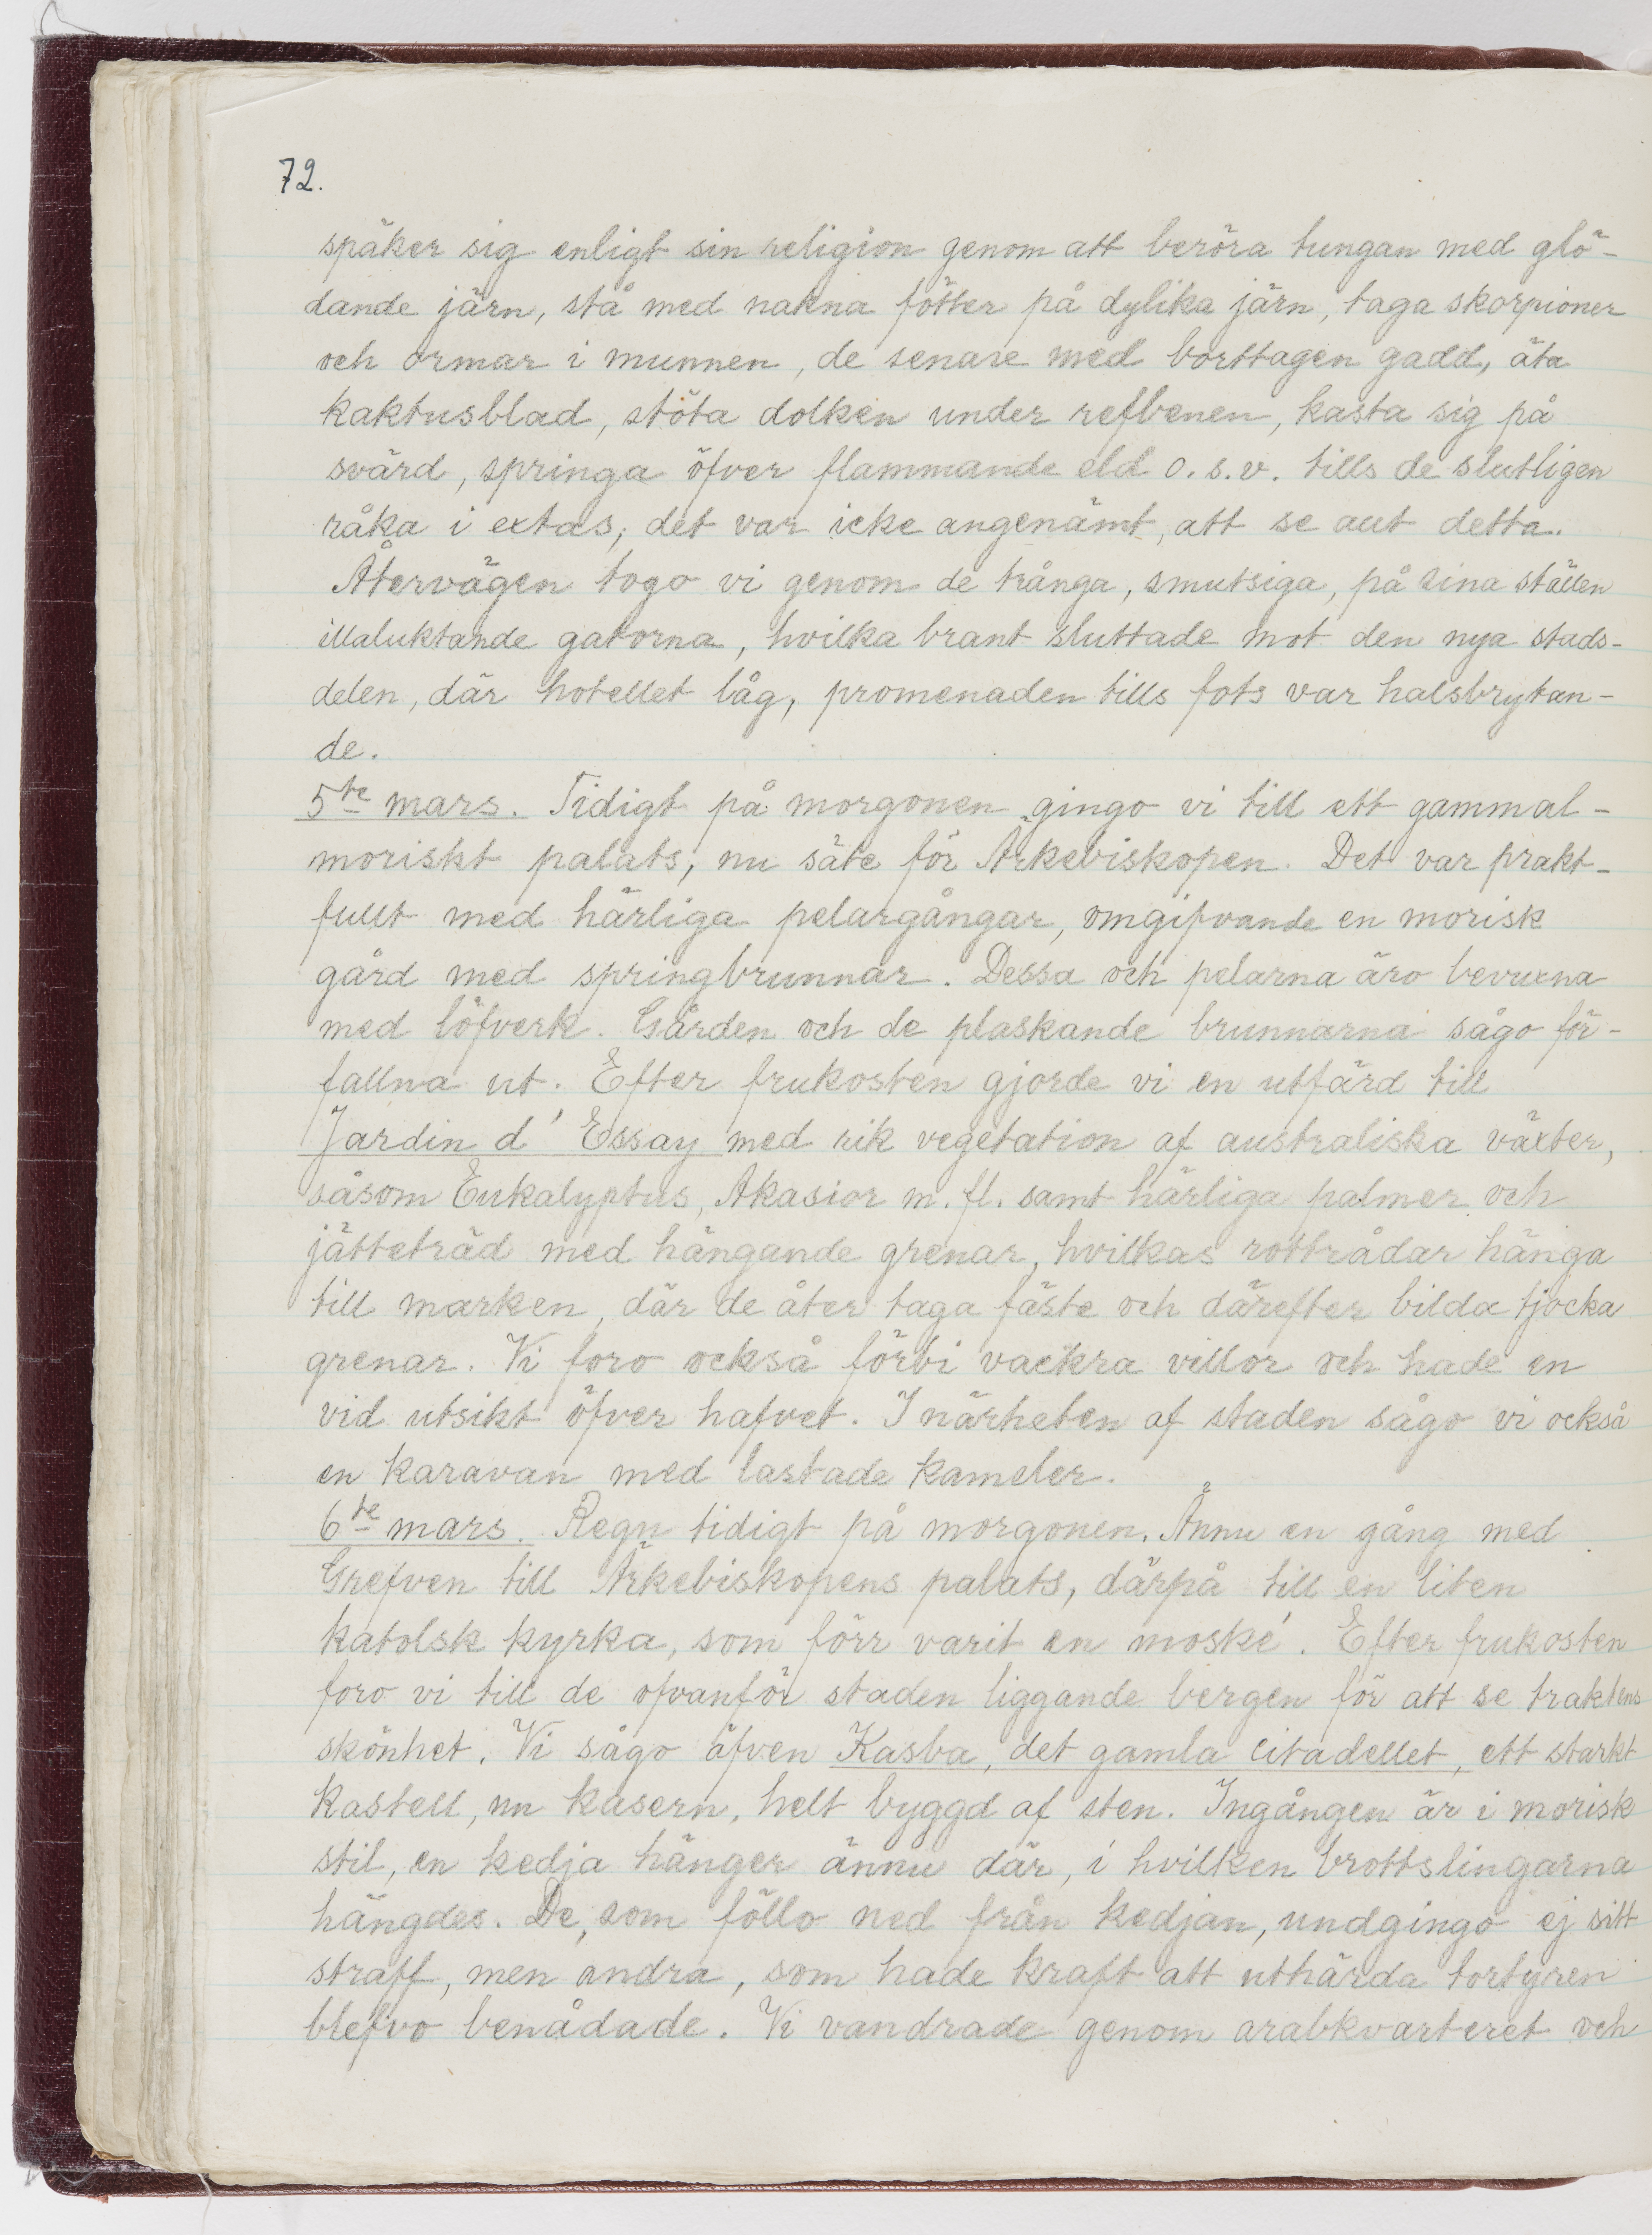 72.
späker sig enligt sin religion genom att beröra tungan med glö-
dande järn, stå med nakna fötter på dylika järn, taga skorpioner
och ormar i munnen, de senare med borttagen gadd, äta
kaktusblad, stöta dolken under refbenen, kasta sig på
svärd, springa öfver flammande eld o.s.v. tills de slutligen
råka i extas; det var icke angenämt, att se allt detta.
Återvägen togo vi genom de trånga, smutsiga, på sina ställen
illaluktande gatorna, hvilka brant sluttade mot den nya stads-
delen, där hotellet låg, promenaden tills fots var halsbrytan-
de.
5te mars. Tidigt på morgonen gingo vi till ett gammal-
moriskt palats, nu säte för Ärkebiskopen. Det var prakt-
fullt med härliga pelargångar, omgifvande en morisk
gård med springbrunnar. Dessa och pelarna äro bevuxna
med löfverk. Gården och de plaskande brunnarna sågo för-
fallna ut. Efter frukosten gjorde vi en utfärd till
Jardin d' Essay med rik vegetation af australiska växter,
såsom Eukalyptus, Akasior m. fl. samt härliga palmer och
jätteträd med hängande grenar, hvilkas rottrådar hänga
till marken, där de åter taga fäste och därefter bilda tjocka
grenar. Vi foro också förbi vackra villor och hade en
vid utsikt öfver hafvet. I närheten af staden sågo vi också
en karavan med lastade kameler.
6te mars. Regn tidigt på morgonen. Ännu en gång med
Grefven till Ärkebiskopens palats, därpå till en liten
katolsk kyrka, som förr varit en moské. Efter frukosten
foro vi till de ofvanför staden liggande bergen för att se traktens
skönhet. Vi sågo äfven Kasba, det gamla citadellet, ett starkt
kastell, nu kasern, helt byggd af sten. Ingången är i morisk
stil, en kedja hänger ännu där, i hvilken brottslingarna
hängdes. De, som föllo ned från kedjan, undgingo ej sitt
straff, men andra, som hade kraft att uthärda tortyren
blefvo benådade. Vi vandrade genom arabkvarteret och